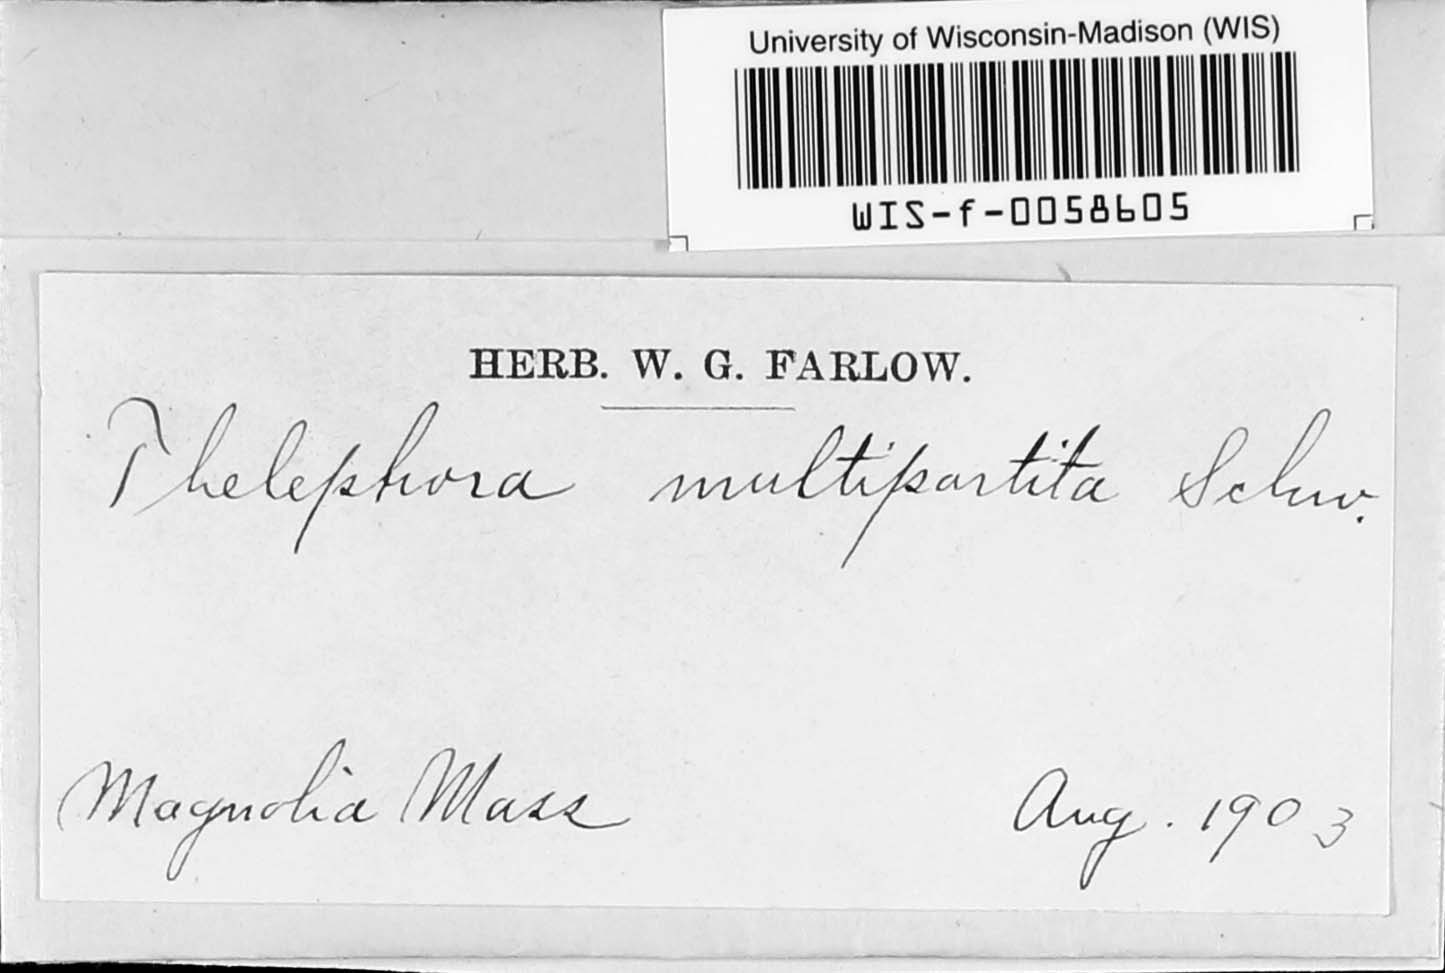 University of Wisconsin-Madison (WIS)
WIS-f-0058605
HERB. W. G. FARLOW.
Thelephora multipartita Schw.
Magnolia Mass
Aug. 1903